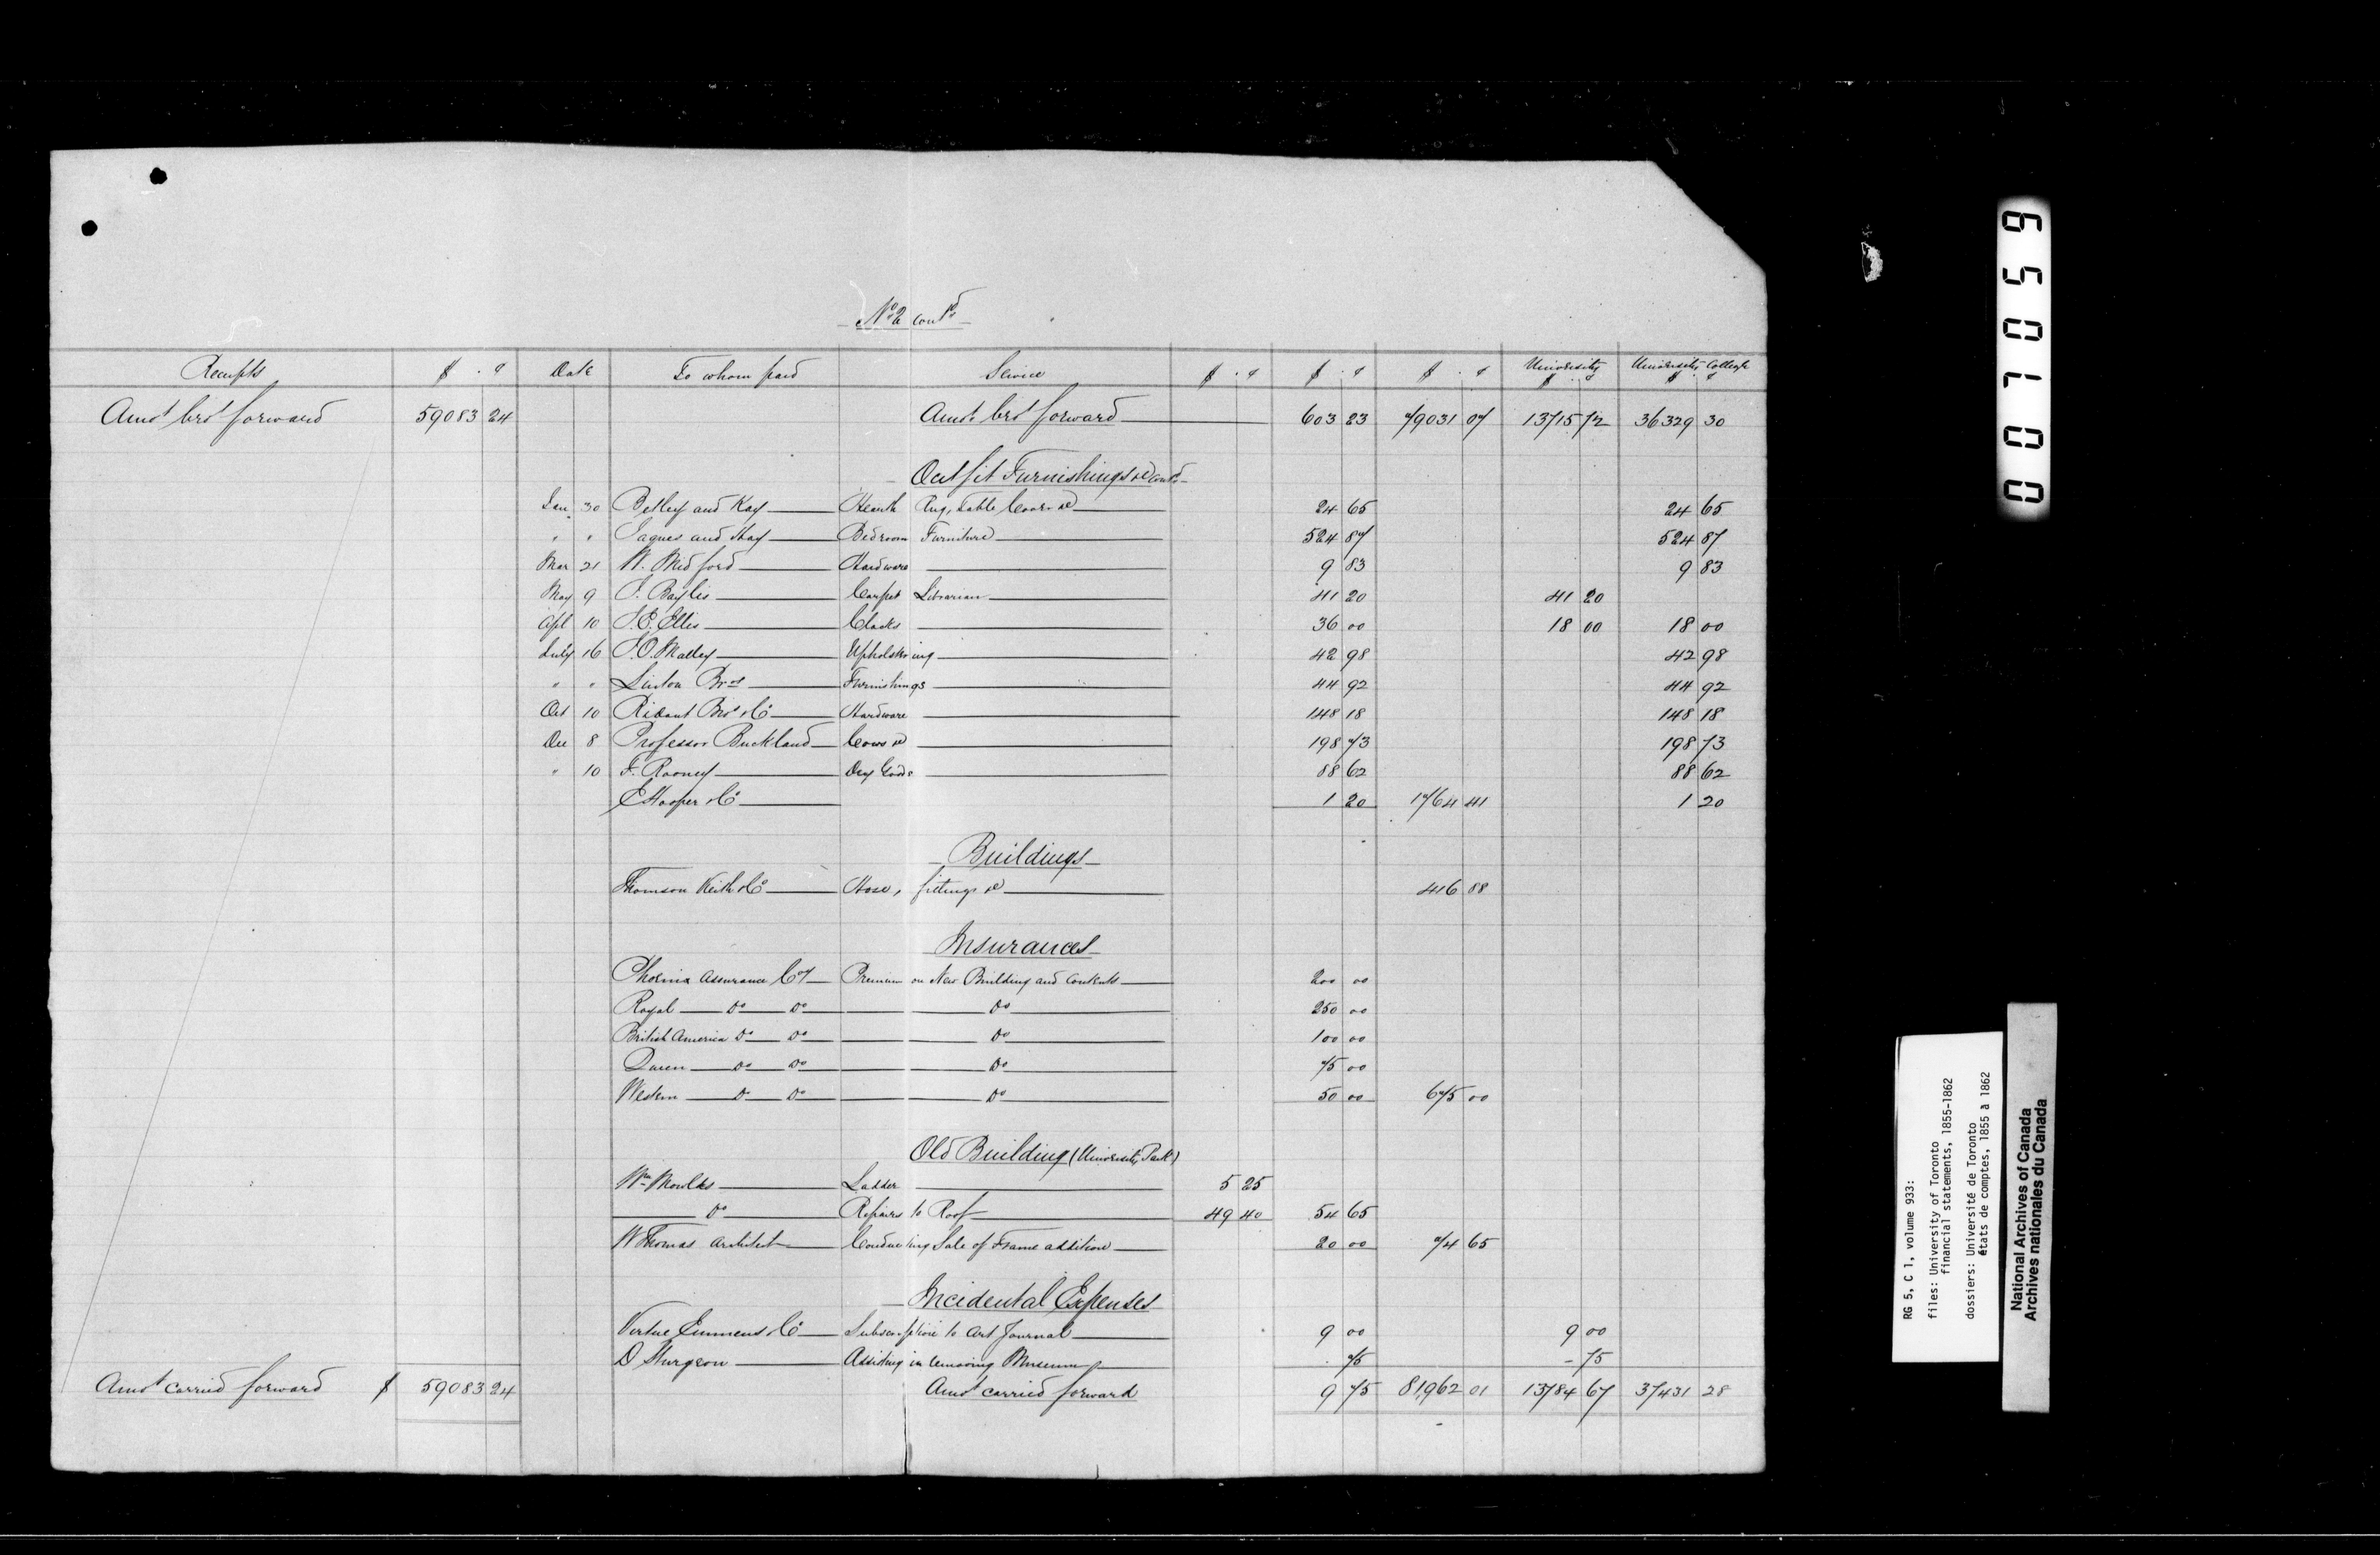 No 2 contd
Receipts $ . ¢ Date To whom paid Service $ . ¢ $ . ¢ $ . ¢ University $ . ¢ University College $ . ¢
Amot brot forward 59083 24 Amot brot forward 603 23 79031 07 13715 72 36329 30
Outfit Furnishings &c contd
Jan 30 Betley and Kay Hearth Rug, Table Cover &c 24 65 24 65
" " Jaques and Hay Bedroom Furniture 524 87 524 87
Mar 21 W. Midford Hardware 9 83 9 83
May 9 J. Baylis Carpet Librarian 41 20 41 20
Apl 10 J.E. Ellis Clocks 36 00 18 00 18 00
July 16 J. O.Malley Upholstering 42 98 42 98
" " Linton Bros Furnishings 44 92 44 92
Oct 10 Ridout Bros &Co Hardware 148 18 148 18
Dec 8 Professor Buckland Cows &c 198 73 198 73
" 10 F. Rooney Dry Goods 88 62 88 62
E Hooper &Co 1 20 1764 41 1 20
Buildings
Thomson Keith &Co Hose, fittings &c 416 88
Insurances
Phoenix Assurance Coy Premium on New Building and Contents 200 00
Royal Do Do Do 250 00
British America Do Do Do 100 00
Queen Do Do Do 75 00
Western Do Do Do 50 00 675 00
Old Building (University Park)
Wm Moulds Ladder 5 25
Do Repairs to Roof 49 40 54 65
W Thomas Architect Conducting Sale of Frame addition 20 00 74 65
Incidental Expenses
Virtue Emmens &Co Subscription to Art Journal 9 00 9 00
D Sturgeon Assisting in removing Museum . 75 - 75
Amot carried forward $ 59083 24 Amot carried forward 9 75 81,962 01 13784 67 37431 28
007059
RG 5, C 1, volume 933:
files: University of Toronto
financial statements, 1855-1862
dossiers: Université de Toronto
états de comptes, 1855 à 1862
National Archives of Canada
Archives nationales du Canada